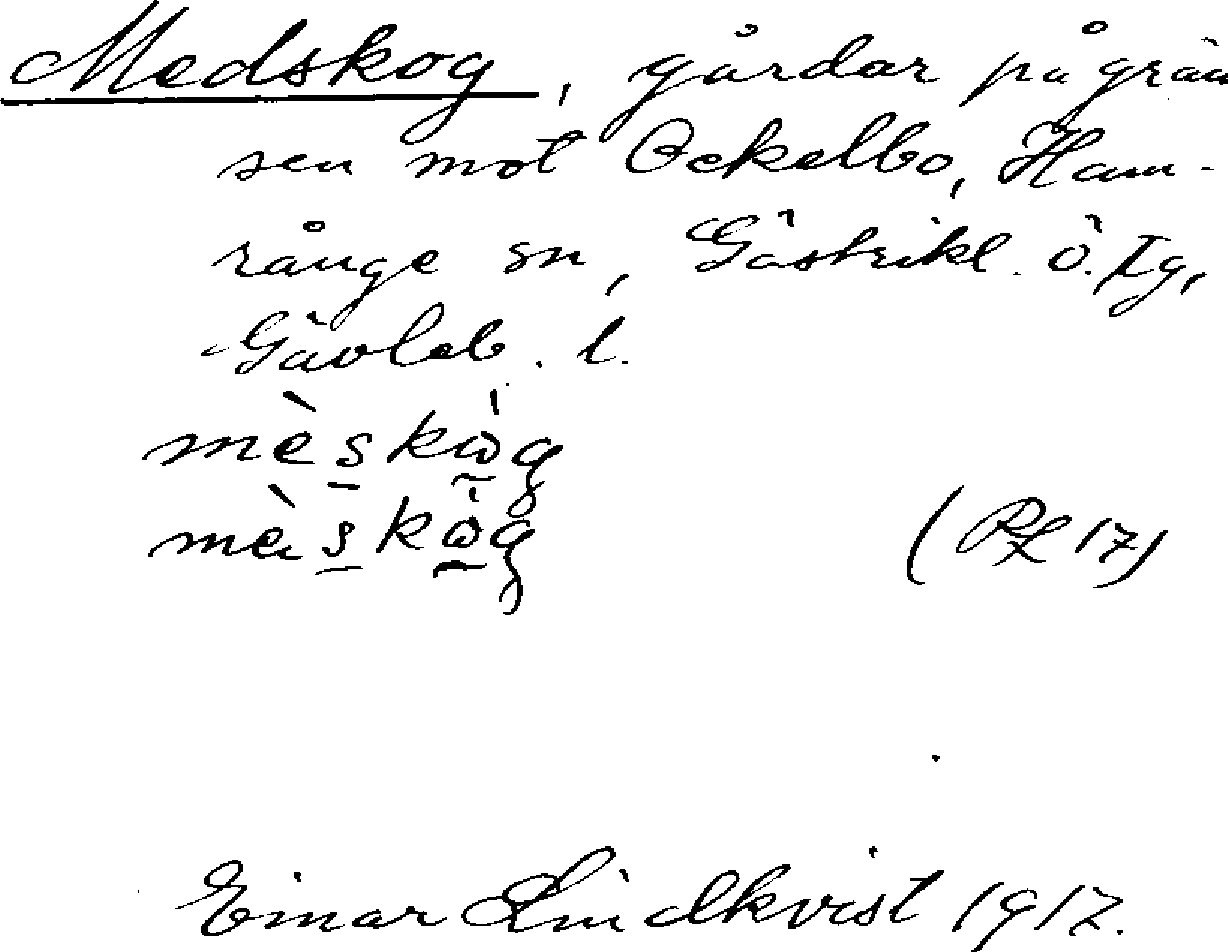 Medskog, gårdar på grän
sen mot Ockelbo, Ham-
rånge sn, Gästrikl. ö. tg,
Gävleb. l.
mèskòg
mèskòg (RZ 17)
Einar Lindkvist 1917.